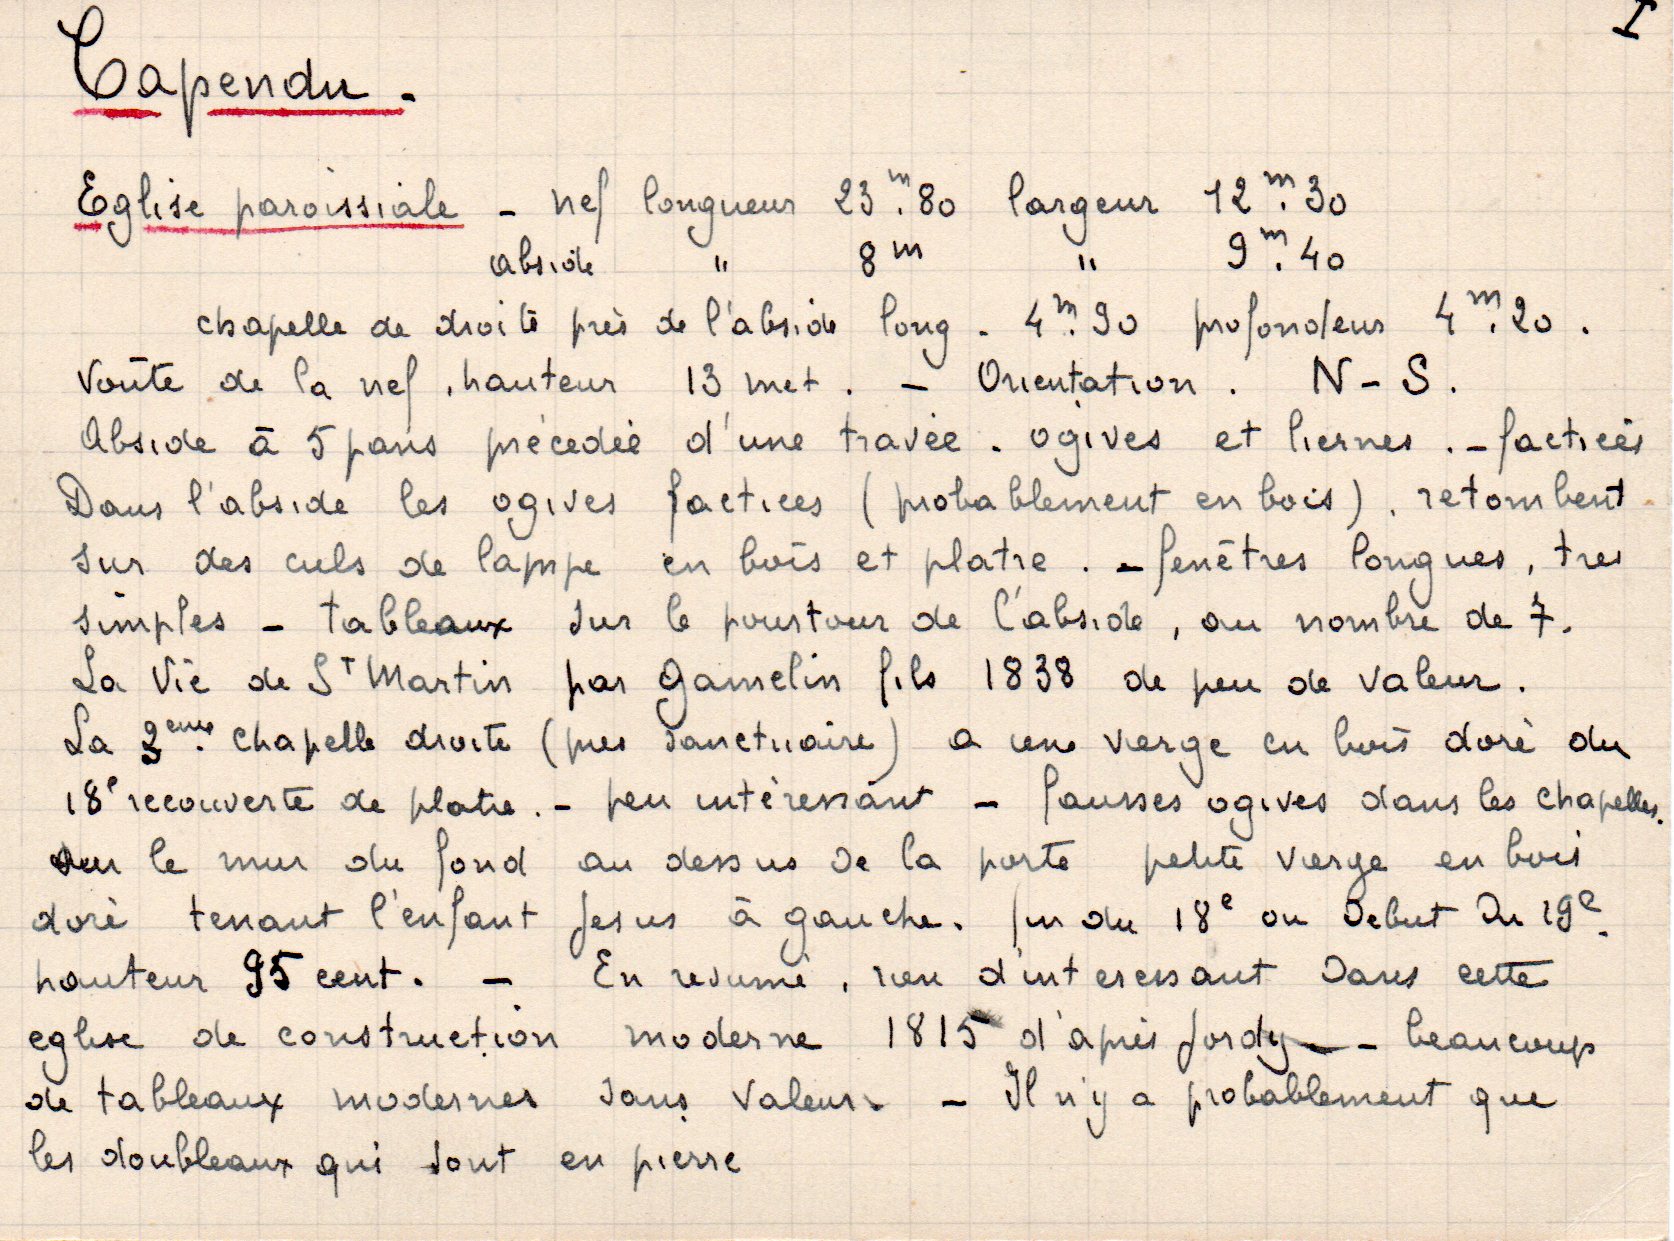 I
Capendu.
Eglise paroissiale - nef longueur 23m.80 largeur 12m.30
abside " 8m " 9m.40
chapelle de droite près de l'abside long. 4m.90 profondeur 4m.20.
Voûte de la nef, hauteur 13 met. - Orientation. N-S.
Abside à 5 pans précédée d'une travée. ogives et liernes. - factices
Dans l'abside les ogives factices (probablement en bois), retombent
sur des culs de lampe en bois et platre. - fenêtres longues, tres
simples - tableaux sur le pourtour de l'abside, au nombre de 7.
La Vie de St Martin par Gamelin fils 1838 de peu de valeur.
La 3eme. chapelle droite (pres sanctuaire) a une vierge en bois doré du
18e recouverte de platre. - peu intéressant - fausses ogives dans les chapelles.
Sur le mur du fond au dessus de la porte petite vierge en bois
doré tenant l'enfant Jesus à gauche. fin du 18e ou debut du 19e.
hauteur 95 cent. - En resumé, rien d'interessant dans cette
eglise de construction moderne 1815 d'après Jordy - beaucoup
de tableaux modernes sans valeur. - Il n'y a probablement que
les doubleaux qui sont en pierre